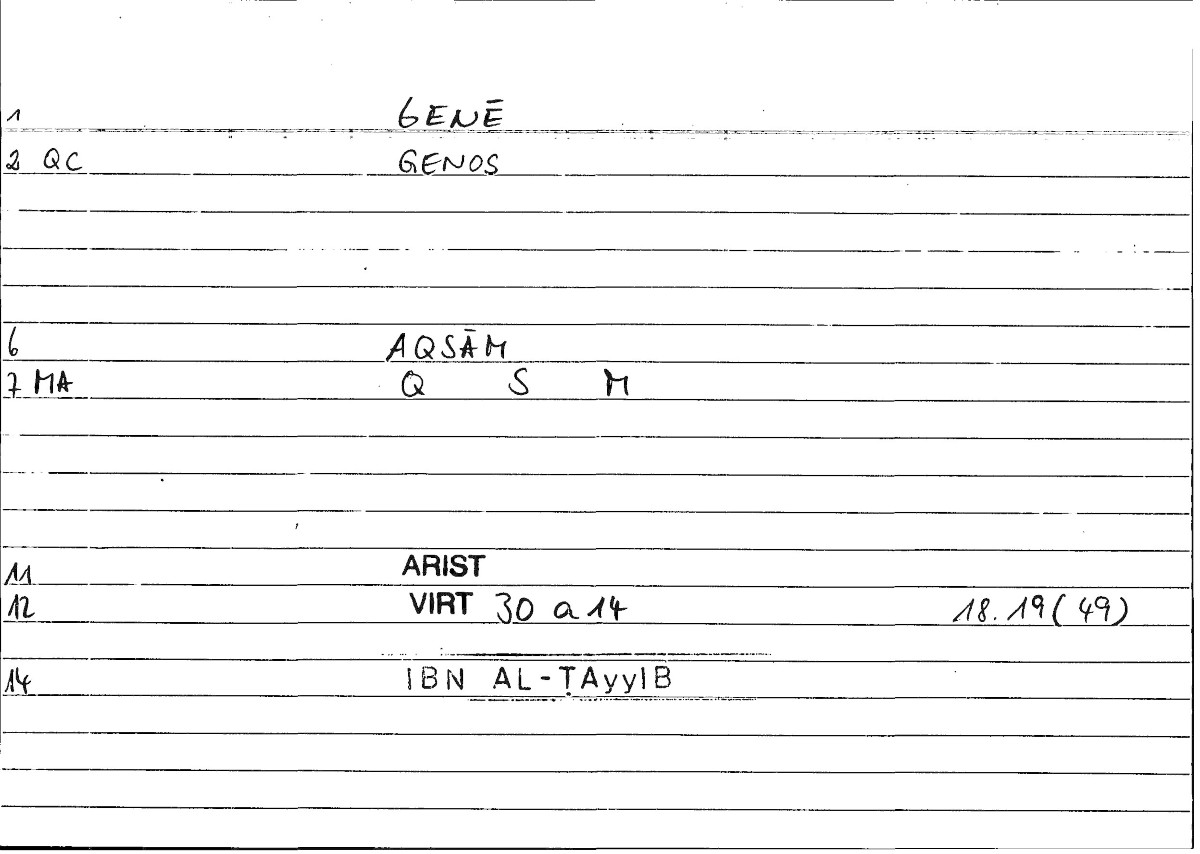 1 GENĒ
2 QC GENOS
6 AQSĀM
7 MA Q S M
11 ARIST
12 VIRT 30 a 14 18. 19 (49)
14 IBN AL-ṬAyyIB